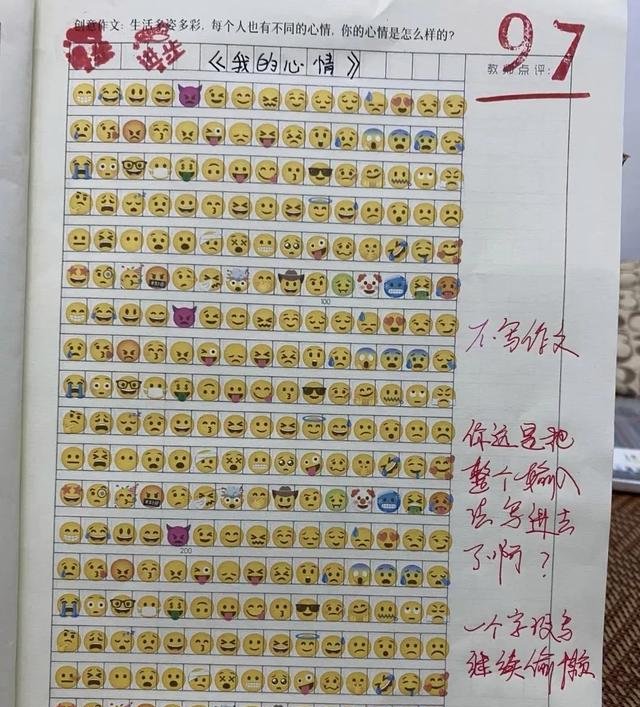 创意作文：生活多姿多彩，每个人也有不同的心情，你的心情是怎么样的？
97
《我的心情》
教师点评：
100
不写作文
你这是把
整个输入
法写进去
了啊？
200
一个字没写
继续偷懒